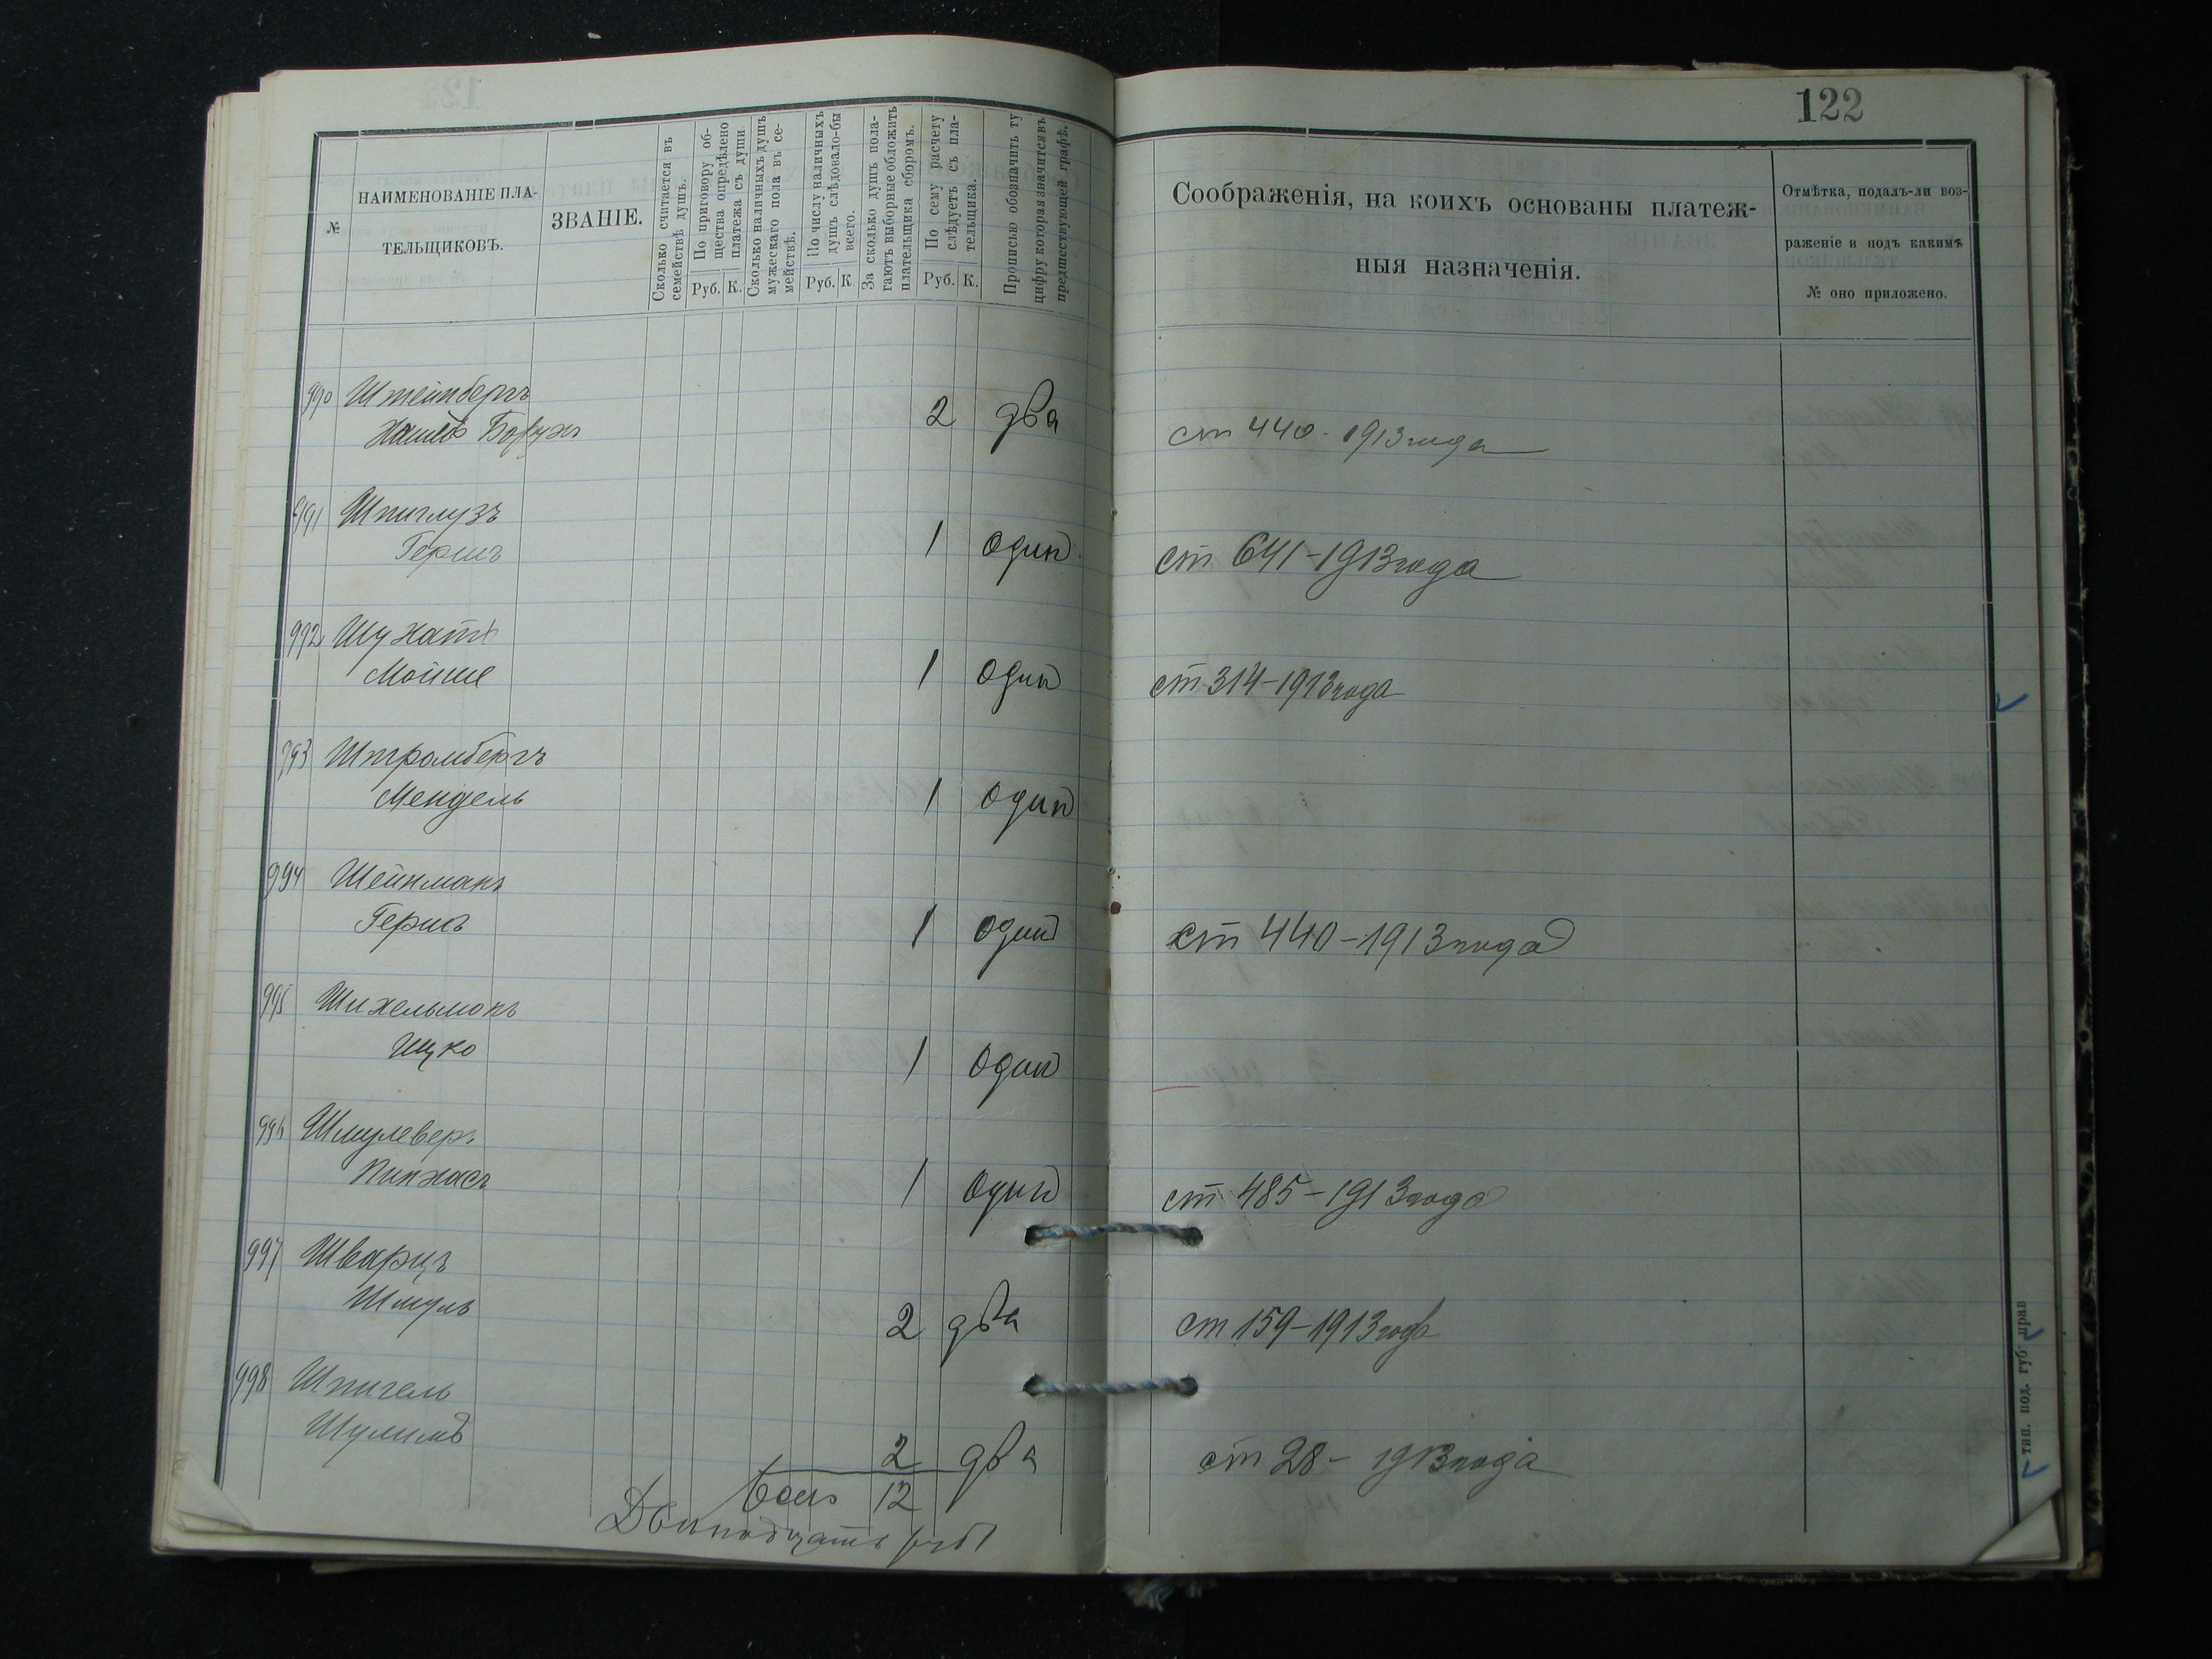 122
№
НАИМЕНОВАНІЕ ПЛА-
ТЕЛЬЩИКОВЪ.
ЗВАНІЕ.
Сколько считается въ
семействѣ душъ.
По приговору об-
щества опредѣлено
платежа съ души
Руб. К.
Сколько наличныхъ душъ
мужескаго пола въ се-
мействѣ.
По числу наличныхъ
душъ слѣдовало-бы
всего.
Руб. К.
За сколько душъ пола-
гаютъ выборные обложить
плательщика сборомъ.
По сему расчету
слѣдуетъ съ пла-
тельщика.
Руб. К.
Прописью обозначить ту
цифру которая значится въ
предшествующей графѣ.
Соображенія, на коихъ основаны платеж-
ныя назначенія.
Отмѣтка, подалъ-ли воз-
раженіе и подъ какимъ
№ оно приложено.
990 Штейнбергъ
Борухъ 2 два ст 440 - 1913 года
991 Шпиглузъ
Гершъ 1 один ст 641 - 1913 года
992 Шухатъ
Мойше 1 один ст 314 - 1913 года
993 Штромбергъ
Мендель 1 один
994 Шейнманъ
Гершъ 1 один ст 440 - 1913 года
995 Шихельманъ
Ицко 1 один
996 Шмулеверъ
Пинхасъ 1 один ст 485 - 1913 года
997 Шварцъ
Шмуль 2 два ст 159 - 1913 года
998 Шпигель
Шулимъ 2 два ст 28 - 1913 года
12
Двенадцать руб
тип. под. губ. прав